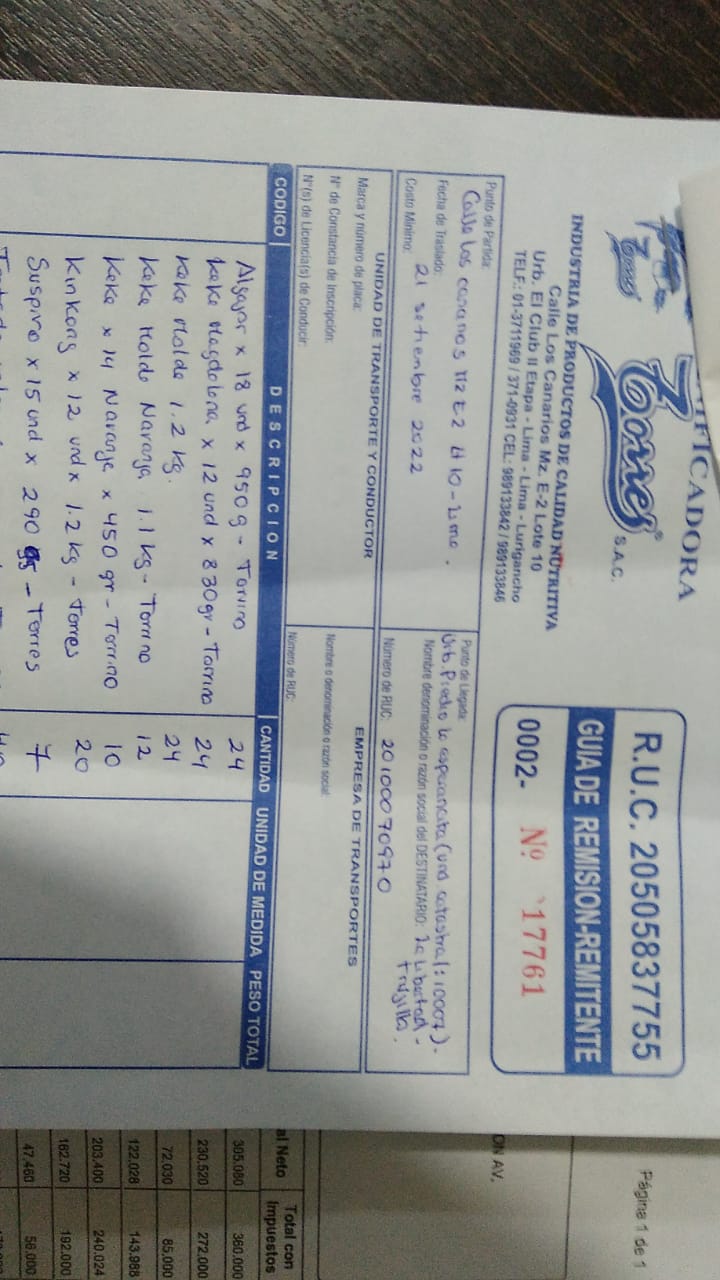 IFICADORA
Torres® S.A.C.
INDUSTRIA DE PRODUCTOS DE CALIDAD NUTRITIVA
Calle Los Canarios Mz. E-2 Lote 10
Urb. El Club II Etapa - Lima - Lima - Lurigancho
TELF.: 01-3711969 / 371-0931 CEL: 989133842 / 989133846
R.U.C. 20505837755
GUIA DE REMISION-REMITENTE
0002- Nº 17761
Punto de Partida:
Calle los canarios Mz E2 lt 10 - Lima.
Fecha de Traslado: 21 setiembre 2022
Costo Mínimo:
Punto de Llegada:
Urb. Predio la esperanza (und catastral: 10007).
Nombre denominación o razón social del DESTINATARIO: La Libertad -
Trujillo.
Número de RUC: 20100070970
UNIDAD DE TRANSPORTE Y CONDUCTOR
Marca y número de placa:
Nº de Constancia de Inscripción:
Nº(s) de Licencia(s) de Conducir:
EMPRESA DE TRANSPORTES
Nombre o denominación o razón social:
Número de RUC:
CODIGO DESCRIPCION CANTIDAD UNIDAD DE MEDIDA PESO TOTAL
Alfajor x 18 und x 950g - Torrino 24
Keke Magdalena x 12 und x 830gr - Torrino 24
Keke Molde 1.2 kg. 24
Keke Molde Naranja 1.1 kg - Torrino 12
Keke x 14 Naranja x 450 gr - Torrino 10
Kinkong x 12 und x 1.2 kg - Torres 20
Suspiro x 15 und x 290 - Torres 7
Página 1 de 1
ON AV.
al Neto Total con Impuestos
305.080 360.000
230.520 272.000
72.030 85.000
122.028 143.988
203.400 240.024
162.720 192.000
47.460 56.000